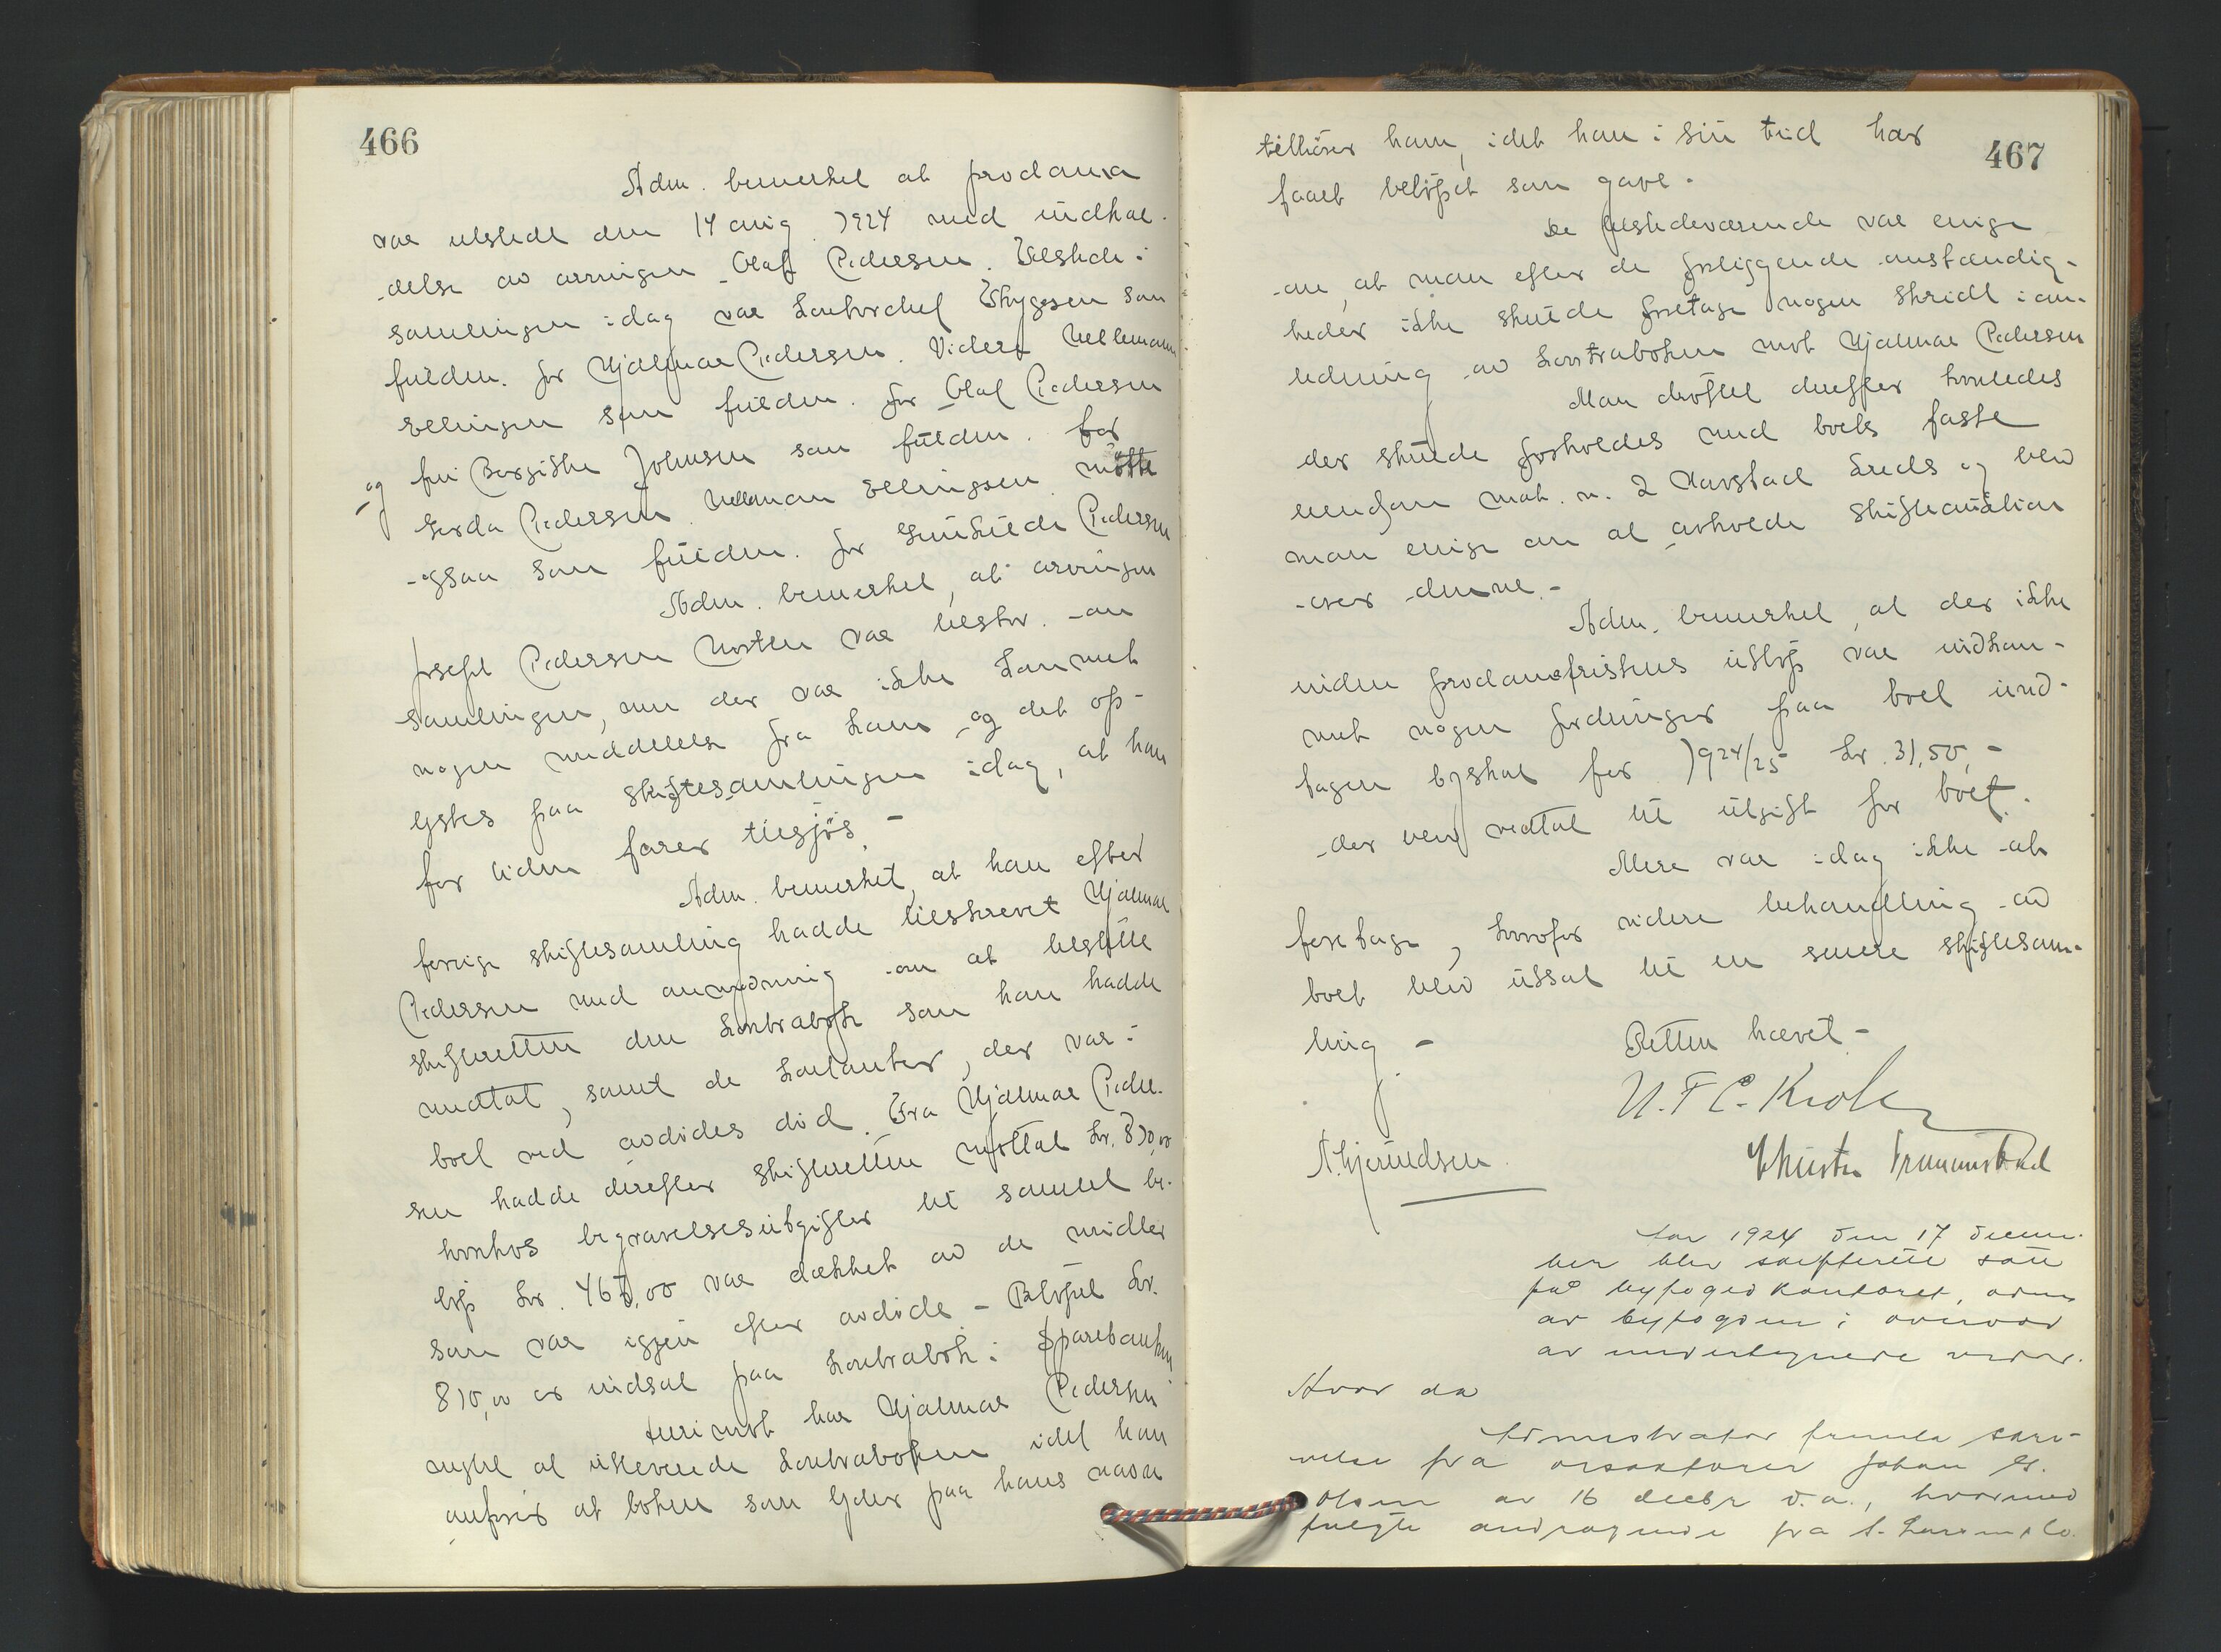 466
Adm. bemerket at proclama
var utstedt den 14 aug. 1924 med indkal-
delse av arvingen Olaf Pedersen. Tilstede i
samlingen idag var kontorchef Thygesen som
fuldm. for Hjalmar Pedersen. Videre Wellemann
Ellingsen som fuldm. for Olaf Pedersen
og fru Bergithe Johnsen som fuldm. for
Gerda Pedersen. Welleman Ellingsen møtte
ogsaa som fuldm. for Pedersen
Adm. bemerket, at arvingen
Josefe Pedersen Morten var tilskr. om
samlingen, men der var ikke kommet
nogen meddelelse fra ham og det op-
lystes paa skiftesamlingen idag, at han
for tiden farer tilsjøs. -
Adm. bemerket, at han efter
forrige skiftesamling hadde tilskrevet Hjalmar
Pedersen med anmodning om at tilstille
skifteretten den kontrabok som han hadde
mottat, samt de kontanter, der var i
boet ved avdødes død. Fra Hjalmar Peder-
sen hadde derefter skifteretten mottat kr. 810,00
hvorhos begravelsesutgifter til samlet be-
løp kr. 465,00 var dækket av de midler
som var igjen efter avdøde. - Beløpet kr.
810,00 er indsat paa kontrabok i Sparebanken
Derimot har Hjalmar Pedersen
negtet at utlevere kontraboken idet han
anfører at boken som lyder paa hans navn
467
tilhører ham, idet han i sin tid har
faaet beløpet som gave.
De tilstedeværende var enige
om, at man efter de foreliggende omstændig-
heder ikke skulde foretage nogen skridt i an-
ledning av kontraboken mot Hjalmar Pedersen
Man drøftet derefter hvorledes
der skulde forholdes med boets faste
eiendom mat. n. 2 Harstad kreds og blev
man enige om at avholde skifteauktion
over denne. -
Adm. bemerket, at der ikke
inden proclamafristens utløp var indkom-
met nogen fordringer paa boet und-
tagen byskat for 1924/25 kr. 31,50, -
der blev vedtat til utgift for boet.
Mere var idag ikke at
foretage, hvorfor videre behandling av
boet blev utsat til en senere skiftesam-
ling. -
Retten hævet -
N. F. C. Krohn
A. Hjerundsen
Christen Trummstad
Aar 1924 den 17 decem-
ber blev skifterett satt
på byfogedkontoret, adm.
av byfogden i overvær
av undertegnede vidner.
Hvor da
Administrator fremla skri-
velse fra orsakfører Johan G.
Olsen av 16 decbr d.a., hvormed
fulgte andragende fra S. Larsen & Co.